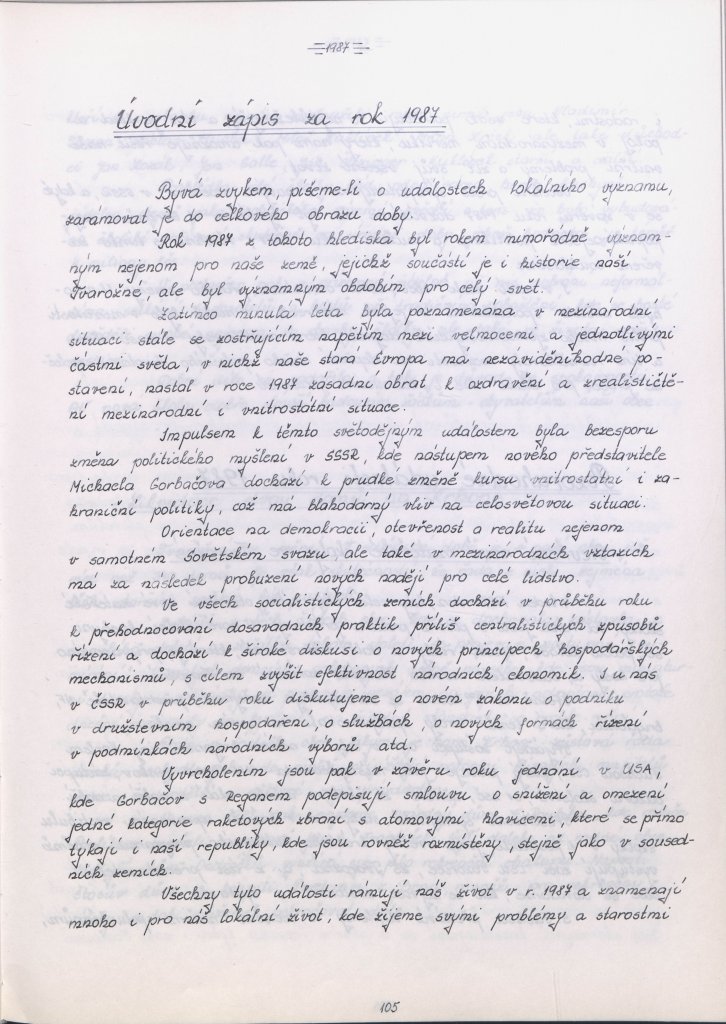 1987
Úvodní zápis za rok 1987
Bývá zvykem, píšeme-li o událostech lokálního významu,
zarámovat je do celkového obrazu doby.
Rok 1987 z tohoto hlediska byl rokem mimořádně význam-
ným nejenom pro naše země, jejichž součástí je i historie naší
Tvarožné, ale byl významným obdobím pro celý svět.
Zatímco minulá léta byla poznamenána v mezinárodní
situaci stále se zostřujícím napětím mezi velmocemi a jednotlivými
částmi světa, v nichž naše stará Evropa má nezáviděníhodné po-
stavení, nastal v roce 1987 zásadní obrat k ozdravění a zrealističtě-
ní mezinárodní i vnitrostátní situace.
Impulsem k těmto světodějným událostem byla bezesporu
změna politického myšlení v SSSR, kde nástupem nového představitele
Michaela Gorbačova dochází k prudké změně kursu vnitrostátní i za-
hraniční politiky, což má blahodárný vliv na celosvětovou situaci.
Orientace na demokracii, otevřenost a realitu nejenom
v samotném Sovětském svazu, ale také v mezinárodních vztazích
má za následek probuzení nových nadějí pro celé lidstvo.
Ve všech socialistických zemích dochází v průběhu roku
k přehodnocování dosavadních praktik příliš centralistických způsobů
řízení a dochází k široké diskusi o nových principech hospodářských
mechanismů, s cílem zvýšit efektivnost národních ekonomik. I u nás
v ČSSR v průběhu roku diskutujeme o novém zákonu o podniku
v družstevním hospodaření, o službách, o nových formách řízení
v podmínkách národních výborů atd.
Vyvrcholením jsou pak v závěru roku jednání v USA,
kde Gorbačov s Reganem podepisují smlouvu o snížení a omezení
jedné kategorie raketových zbraní s atomovými hlavicemi, které se přímo
týkají i naší republiky, kde jsou rovněž rozmístěny, stejně jako v soused-
ních zemích.
Všechny tyto události rámují náš život v r. 1987 a znamenají
mnoho i pro náš lokální život, kde žijeme svými problémy a starostmi
105